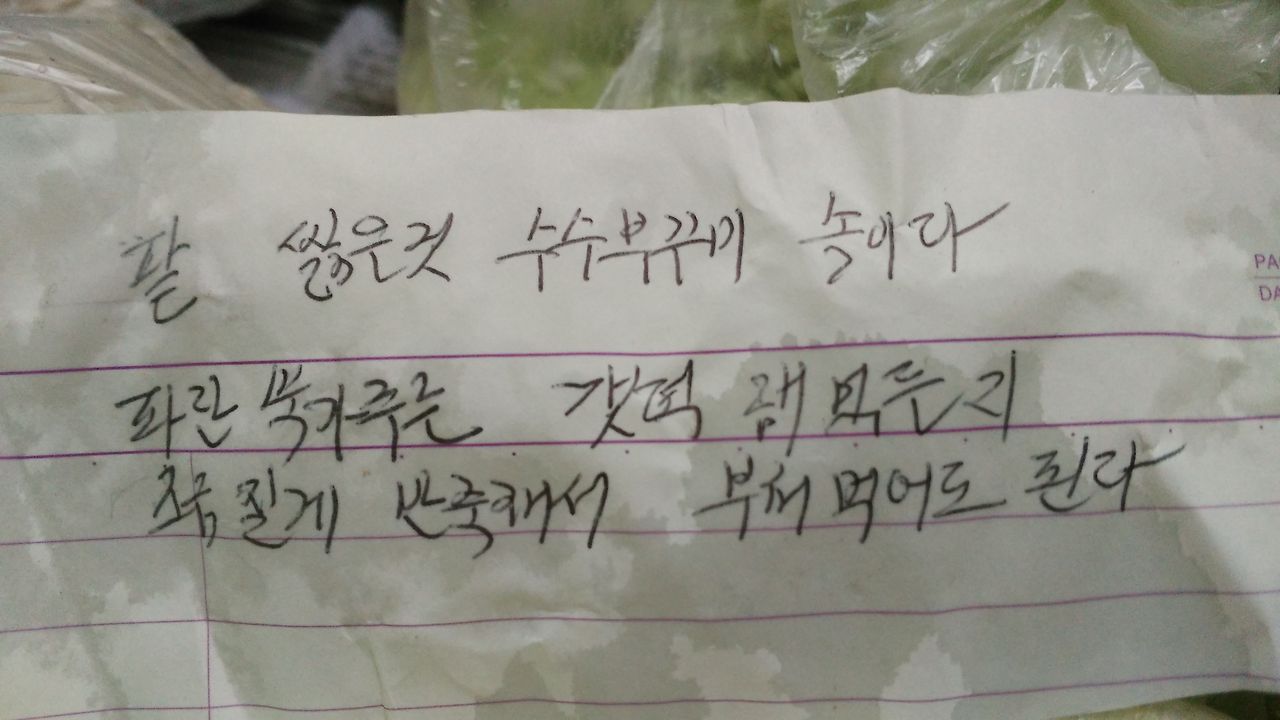 팥 씲은것 수수부꾸미 속이다
파란 쑥가루는 갯떡 해먹든지
조금 질게 반죽해서 부처먹어도 된다
PA
DA